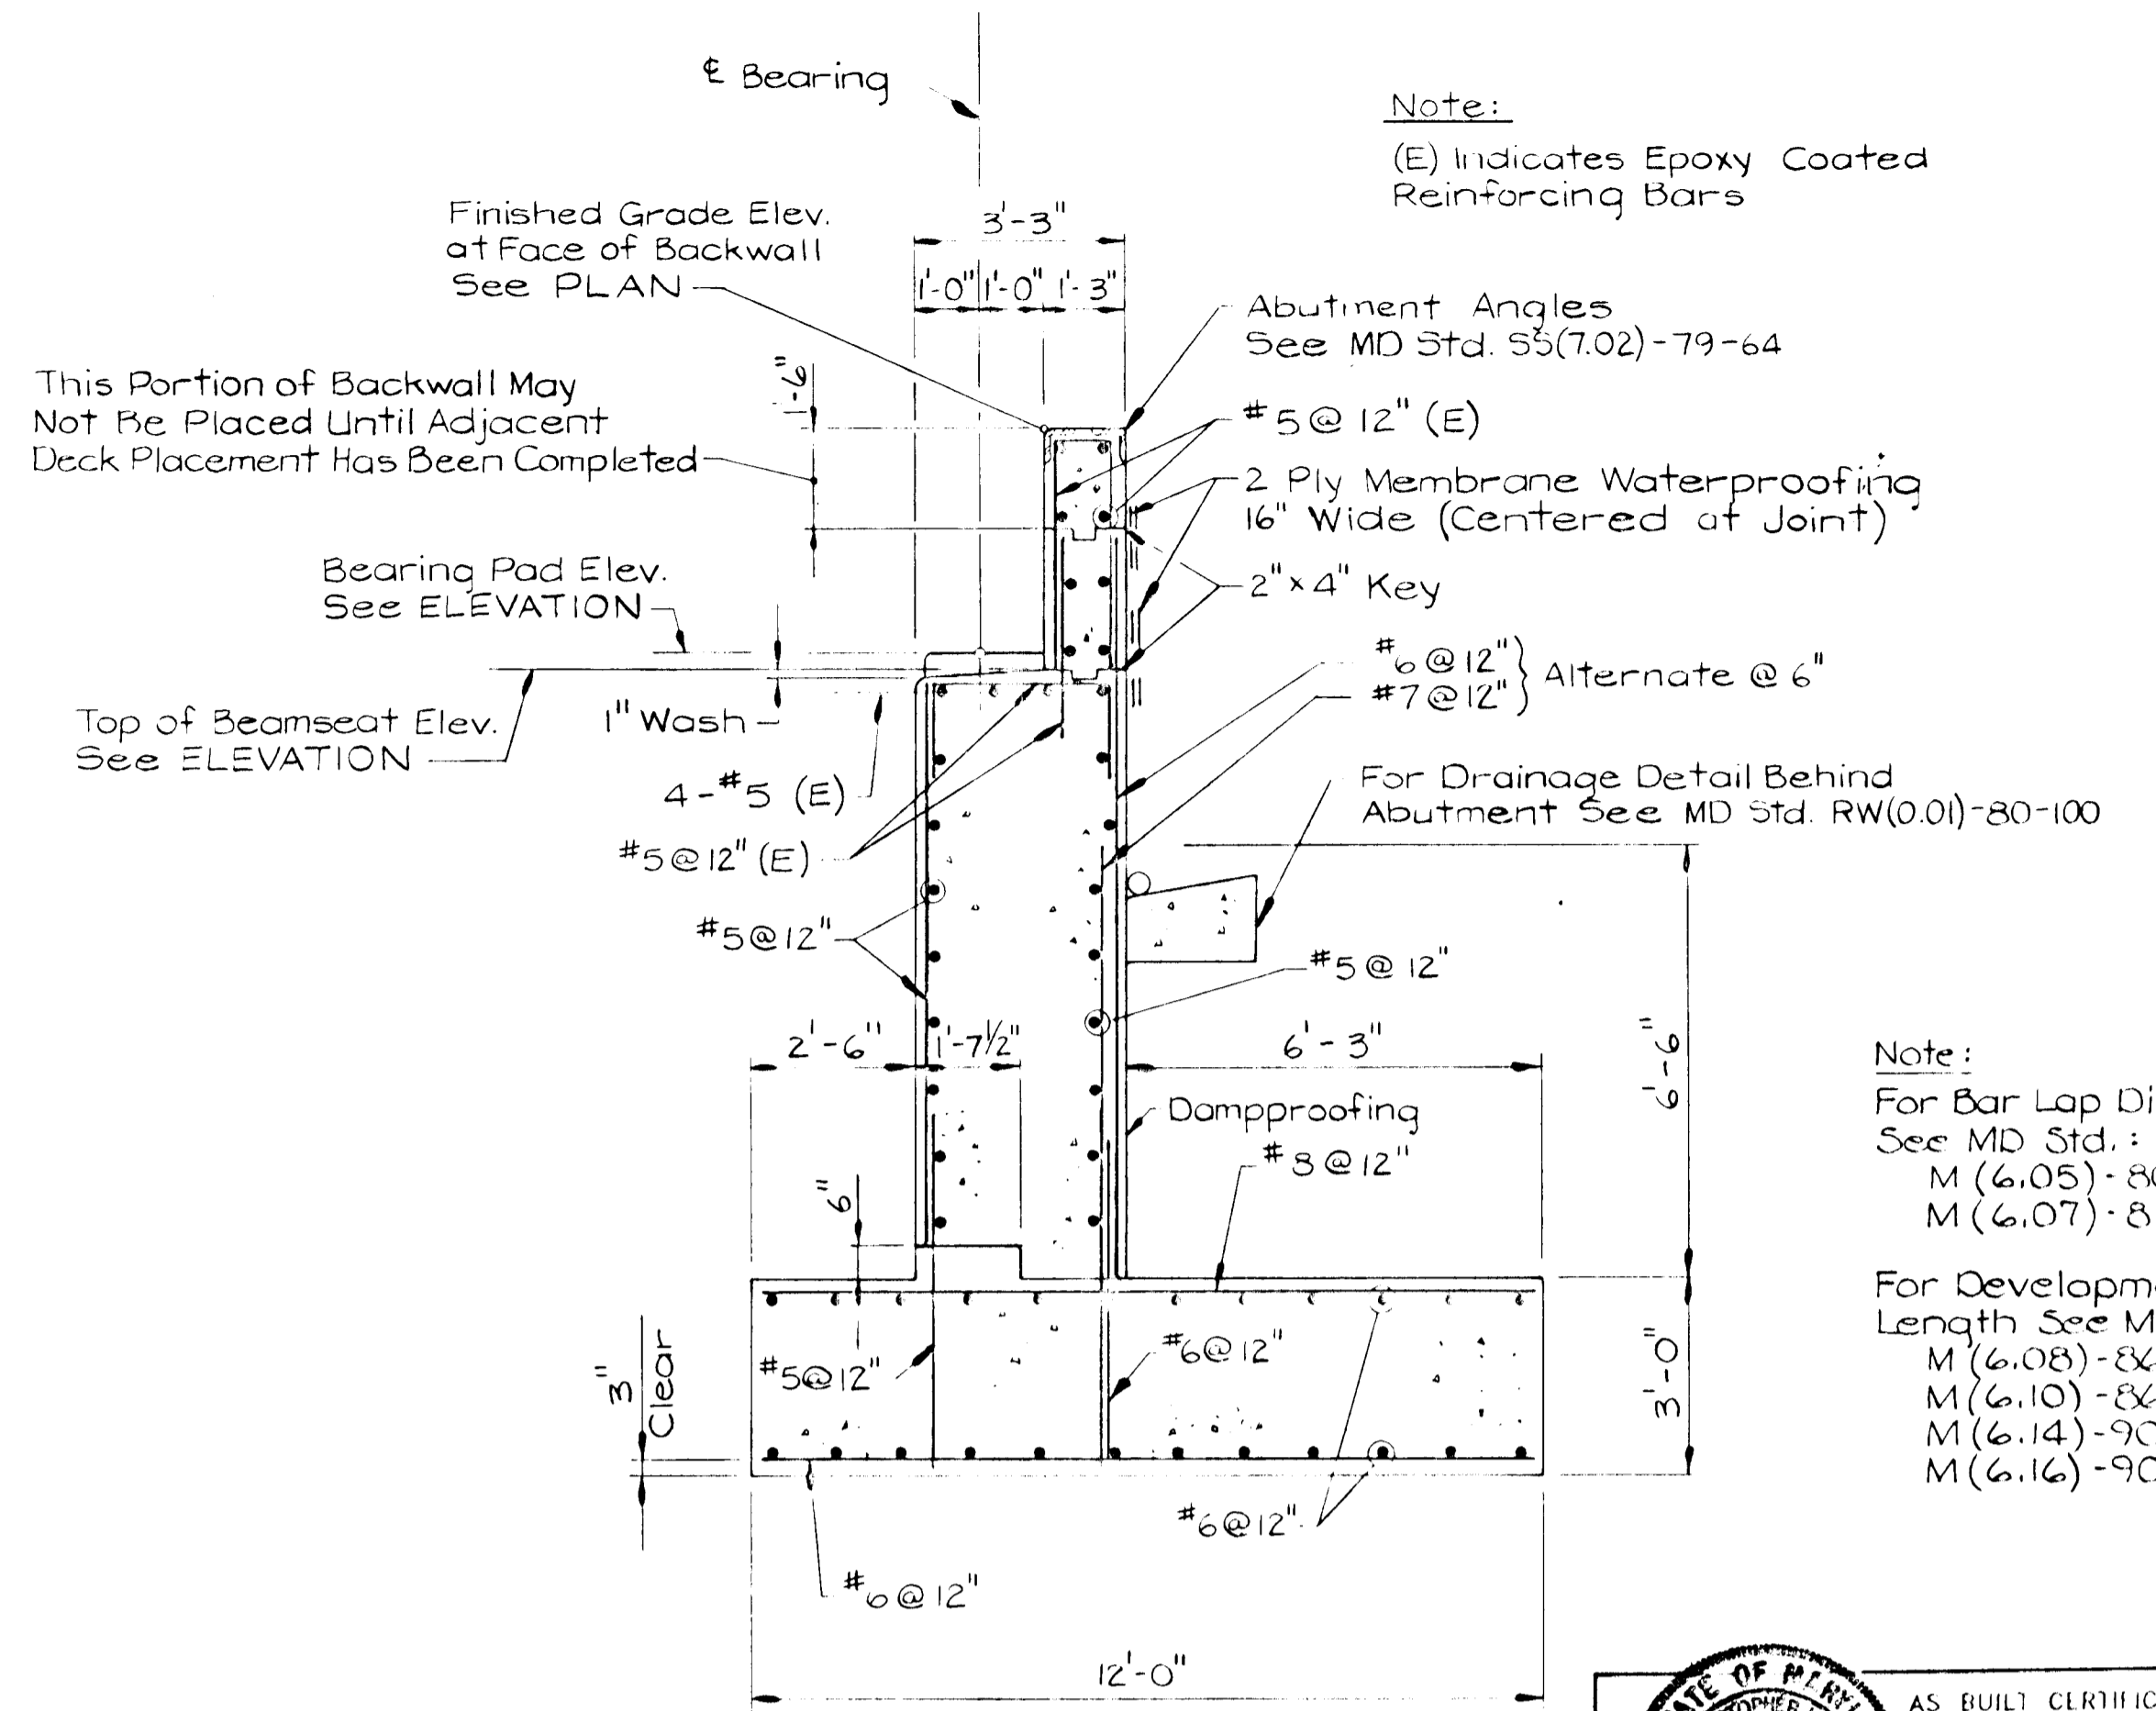 ℄ Bearing
Note:
(E) Indicates Epoxy Coated
Reinforcing Bars
Finished Grade Elev.
at Face of Backwall
See PLAN
3'-3"
1'-0" 1'-0" 1'-3"
Abutment Angles
See MD Std. SS(7.02)-79-64
This Portion of Backwall May
Not Be Placed Until Adjacent
Deck Placement Has Been Completed
1'-6"
#5@12" (E)
2 Ply Membrane Waterproofing
16" Wide (Centered at Joint)
Bearing Pad Elev.
See ELEVATION
2"x4" Key
#6@12"
#7@12"
Alternate @ 6"
Top of Beamseat Elev.
See ELEVATION
1" Wash
4-#5 (E)
For Drainage Detail Behind
Abutment See MD Std. RW(0.01)-80-100
#5@12" (E)
#5@12"
#5@12"
2'-6"
1'-7½"
6'-3"
6'-6"
Dampproofing
#8@12"
6"
Note:
For Bar Lap Di
See MD Std.:
M(6.05)-8
M(6.07)-8
For Developm
Length See M
M(6.08)-86
M(6.10)-86
M(6.14)-90
M(6.16)-90
3"
Clear
#5@12"
#6@12"
3'-0"
#6@12"
#6@12"
12'-0"
AS BUILT CERTIFIC